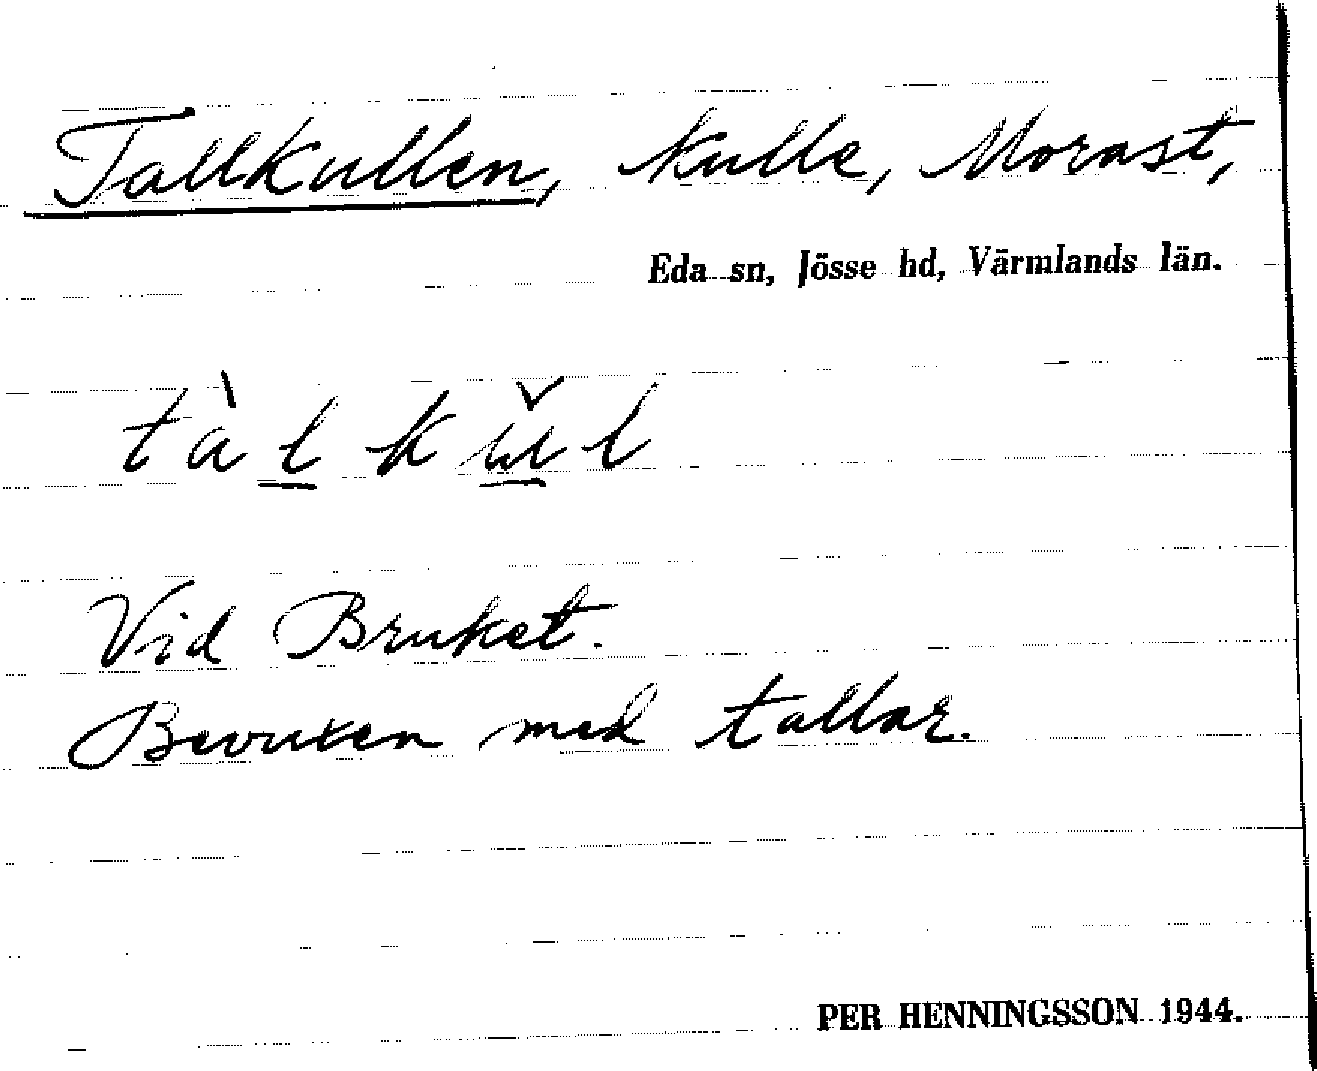 Tallkullen, kulle, Morast,
Eda sn, Jösse hd, Värmlands län.
tàl̲kǔ̲l
Vid Bruket.
Bevuxen med tallar.
PER HENNINGSSON 1944.